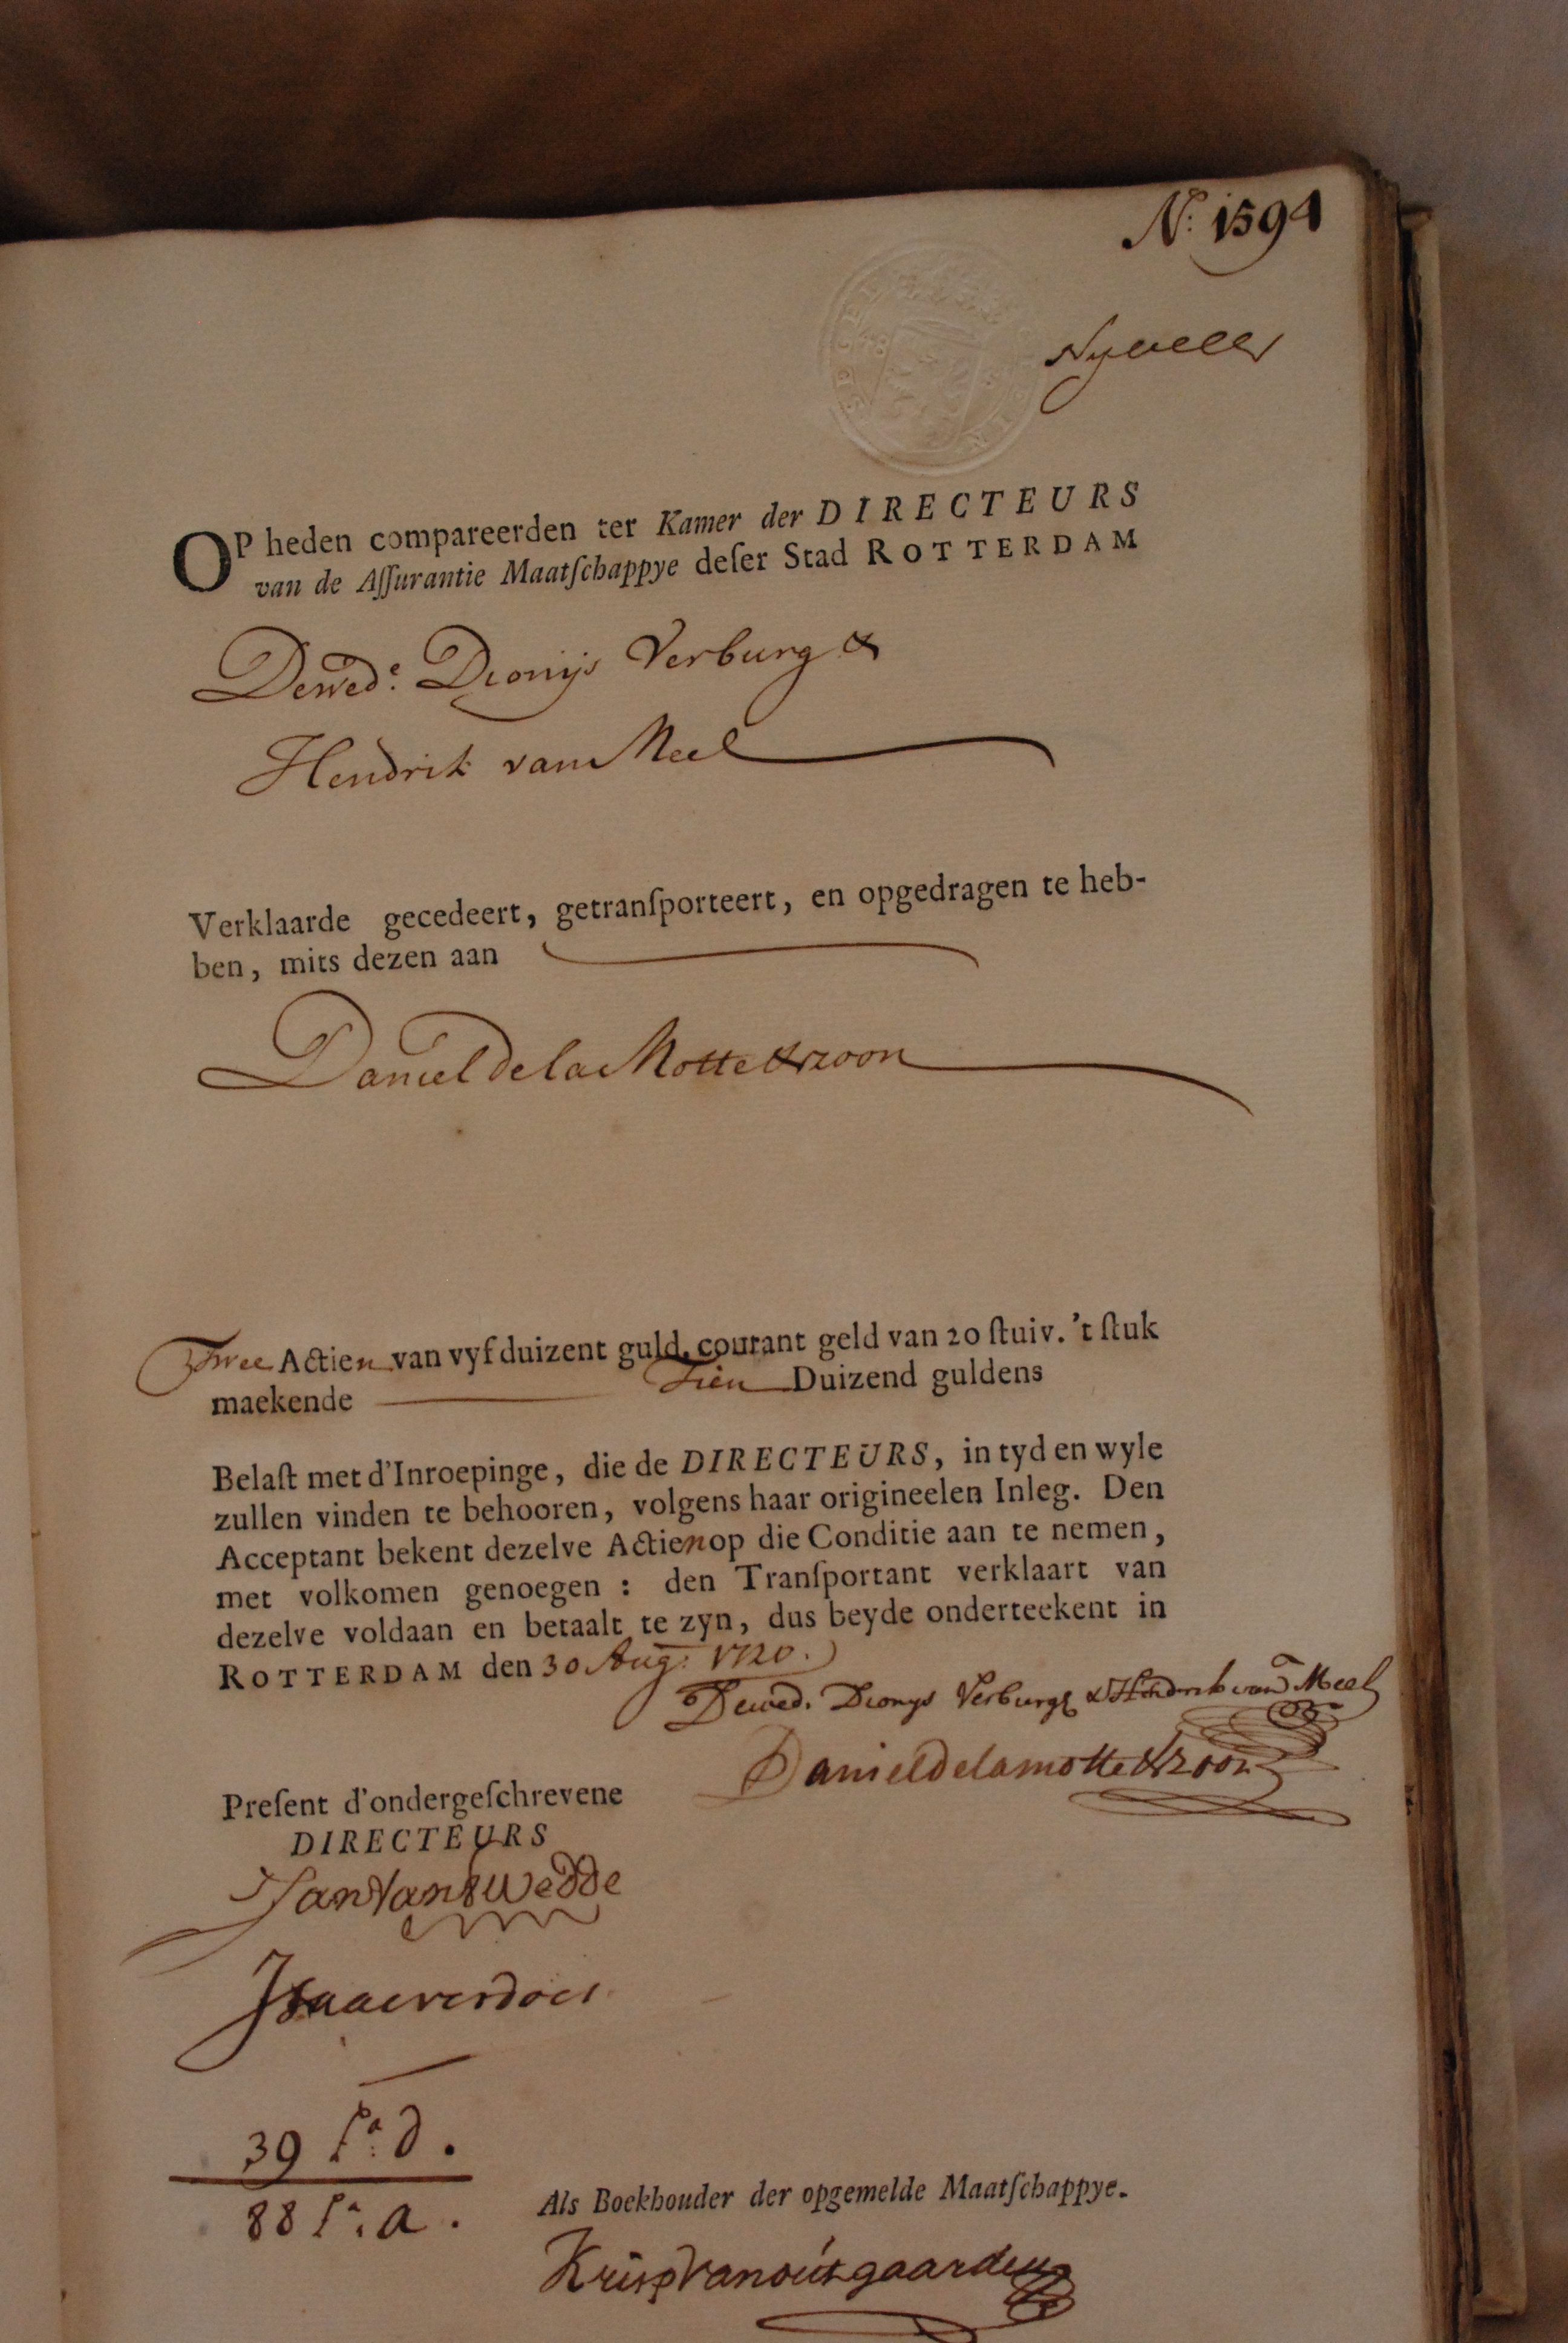 N.º 1594
Nyvelt
OP heden compareerden ter Kamer der DIRECTEURS
van de Aſſurantie Maatſchappye deſer Stad ROTTERDAM
De wed.e Dionijs Verburg &
Hendrik van Meel
Verklaarde gecedeert, getranſporteert, en opgedragen te heb-
ben, mits dezen aan
Daniel de la Motte & zoon
Twee Actien van vyf duizent guld. courant geld van 20 ſtuiv. 't ſtuk
maekende Tien Duizend guldens
Belaſt met d'Inroepinge, die de DIRECTEURS, in tyd en wyle
zullen vinden te behooren, volgens haar origineelen Inleg. Den
Acceptant bekent dezelve Actien op die Conditie aan te nemen,
met volkomen genoegen : den Tranſportant verklaart van
dezelve voldaan en betaalt te zyn, dus beyde onderteekent in
ROTTERDAM den 30 Aug: 1720.
De wed. Dionys Verburg & Hendrik van Meel
Daniel de la motte & zoon
Preſent d'ondergeſchrevene
DIRECTEURS
Jan Van Swedde
Isaac verdoes
39 f.a d.
88 f.a a.
Als Boekhouder der opgemelde Maatſchappye.